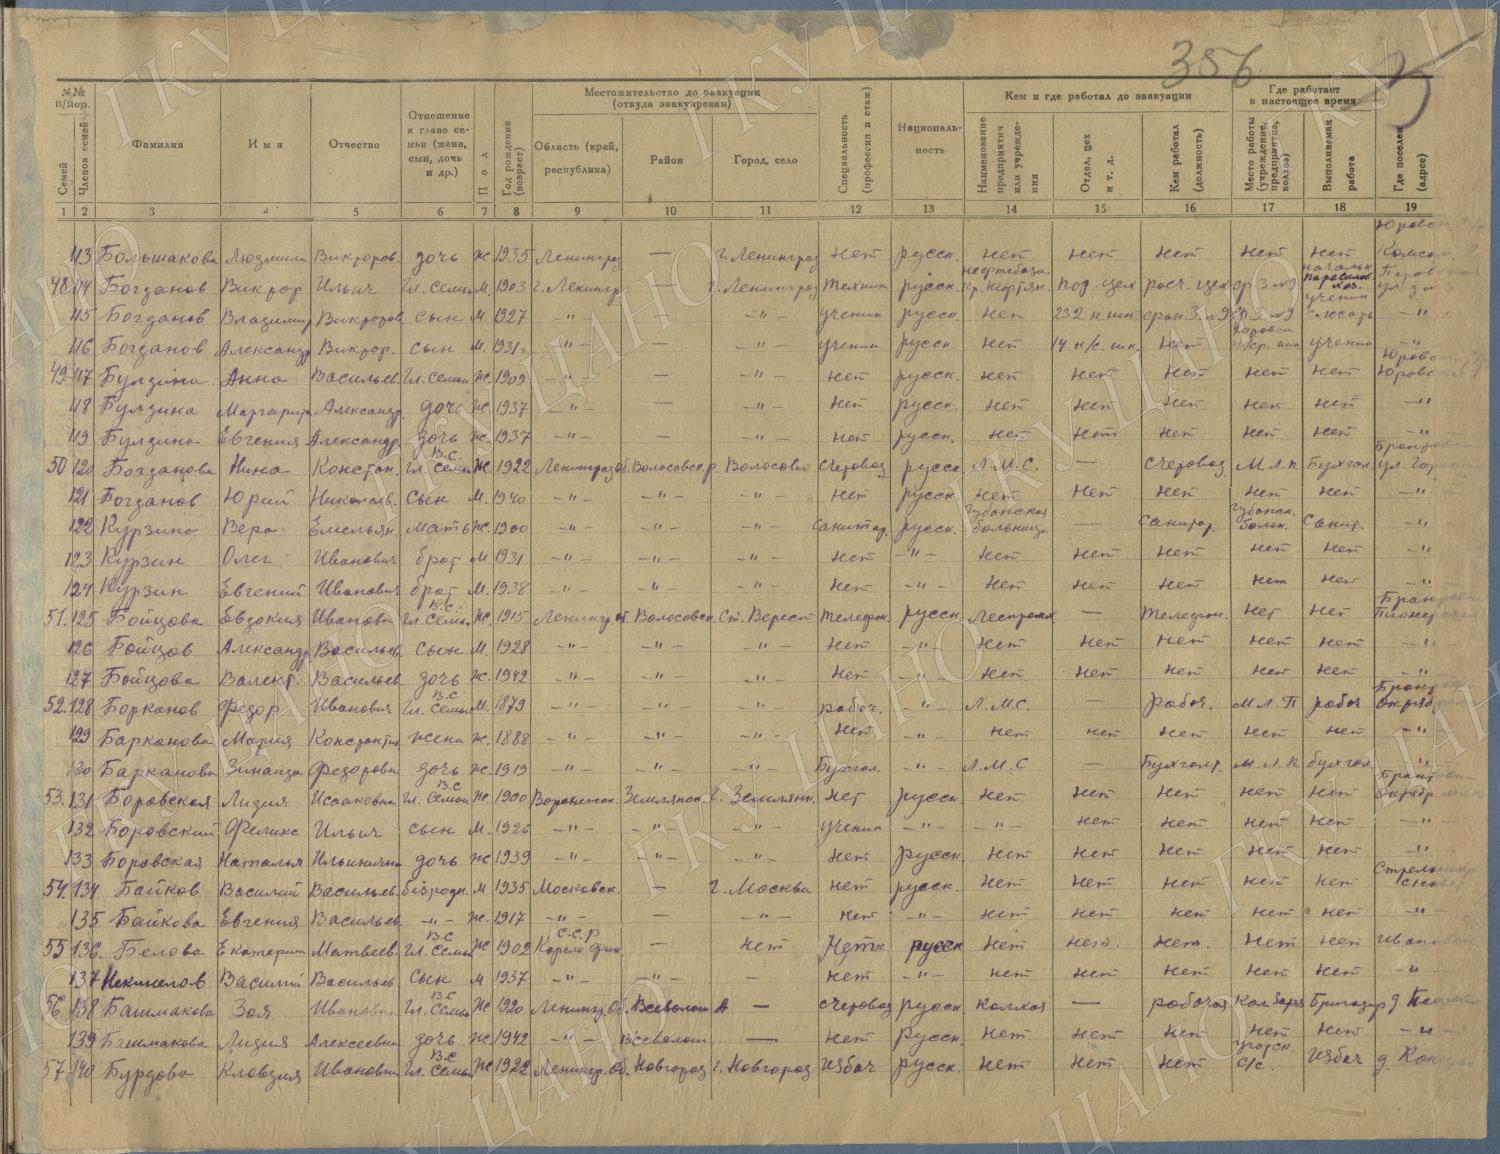 356
№№ п/пор.
Семей
Членов семей
Фамилия
Имя
Отчество
Отношение к главе семьи (жена, сын, дочь и др.)
Пол
Год рождения (возраст)
Местожительство до эвакуации (откуда эвакуирован)
Область (край, республика)
Район
Город, село
Специальность (профессия и стаж)
Националь-ность
Кем и где работал до эвакуации
Наименование предприятия или учреждения
Отдел, цех и т. д.
Кем работал (должность)
Где работает в настоящее время
Место работы (учреждение, предприятие, колхоз)
Выполняемая работа
Где поселен (адрес)
1 2 3 4 5 6 7 8 9 10 11 12 13 14 15 16 17 18 19
113 Большакова Людмила Викторов. дочь ж. 1935 Ленинград — г. Ленинград нет русск. нет нет нет нет нет
48. 114 Богданов Виктор Ильич гл. семьи м. 1903 г. Ленингр. — г. Ленинград техник русск.
115 Богданов Владимир Викторов. сын м. 1927 -"- — -"- ученик русск. нет 232 н. шк. слесарь -"-
116 Богданов Александр Виктор. сын м. 1931 г. -"- — -"- ученик русск. нет 14 н/с. шк. нет ученик -"-
49 117 Булдина Анна Васильев. гл. семьи ж. 1909 -"- — -"- нет русск. нет нет нет нет нет
118 Булдина Маргарита Александр. дочь ж. 1937 -"- — -"- нет русск. нет нет нет нет нет -"-
119 Булдина Евгения Александр. дочь ж. 1937 -"- — -"- нет русск. нет нет нет нет нет -"-
50 120 Богданова Нина Констан. В.С. гл. семьи ж. 1922 Ленинград. об. Волосовск. р. Волосово счетовод русск. Л.М.С. — счетовод М.Л.П Бухгал.
121 Богданов Юрий Николаев. сын м. 1940 -"- -"- -"- нет русск. нет нет нет нет нет -"-
122 Курзина Вера Емельян. мать ж. 1900 -"- -"- -"- санитар. русск. Губанская больница — санитар. Губанск. больн. Санит. -"-
123 Курзин Олег Иванович брат м 1931 -"- -"- -"- нет -"- нет нет нет нет нет -"-
124 Курзин Евгений Иванович брат м. 1938 -"- -"- -"- нет -"- нет нет нет нет нет -"-
51. 125 Бойцова Евдокия Ивановн. В.С. гл. семьи ж. 1915 Ленингр. об. Волосовск. Ст. Верест телефон. русск. Леспромх — телефон. нет нет
126 Бойцов Александр Васильев. сын м. 1928 -"- -"- -"- нет -"- нет нет нет нет нет -"-
127 Бойцова Валент. Васильев. дочь ж. 1942 -"- -"- -"- нет -"- нет нет нет нет нет -"-
52. 128 Борканов Федор Иванович В.С гл. семьи м. 1879 -"- -"- -"- рабоч. -"- Л.М.С. — рабоч. М.Л.П рабоч
129 Барканова Мария Константин. жена ж. 1888 -"- -"- -"- нет -"- нет нет нет нет нет -"-
130 Барканова Зинаида Федоровн. дочь ж. 1919 -"- -"- -"- Бухгал. -"- Л.М.С — Бухгалт. М.Л.П бухгал. -"-
53. 131 Боровская Лидия Исааковна В.С гл. семьи ж. 1900 Воронежск. Землянск. г. Землянк. нет русск. нет нет нет нет нет
132 Боровский Феликс Ильич сын м. 1926 -"- -"- -"- ученик -"- -"- нет нет нет нет -"-
133 Боровская Наталья Ильинична дочь ж 1939 -"- -"- -"- нет русск. нет нет нет нет нет -"-
54. 134 Байков Василий Васильев. безродн. м 1935 Московск. — г. Москва нет русск. нет нет нет нет нет
135 Байкова Евгения Васильев. -"- ж. 1917 -"- — -"- нет -"- нет нет нет нет нет -"-
55 136. Белова Екатерин. Матвеев. В.С гл. семьи ж 1902 С.С.Р Карело фин. — нет нет русск нет нет. нет. нет нет
137 Некипелов Василий Васильев. сын м 1937 -"- -"- — нет -"- нет нет нет нет нет -"-
56 138 Башмакова Зоя Ивановн. В.С гл. семьи ж 1920 Ленингр. об. Всеволож — счетовод русск. колхоз — рабочая Кол. Заря Бригадир
139 Башмакова Лидия Алексеевна дочь ж. 1942 -"- Всеволож. — нет русск. нет нет нет нет нет -"-
57 140 Бурдова Клавдия Ивановна В.С гл. семьи ж 1922 Ленингр. об. Новгород г. Новгород избач русск. нет нет нет с/с. избач